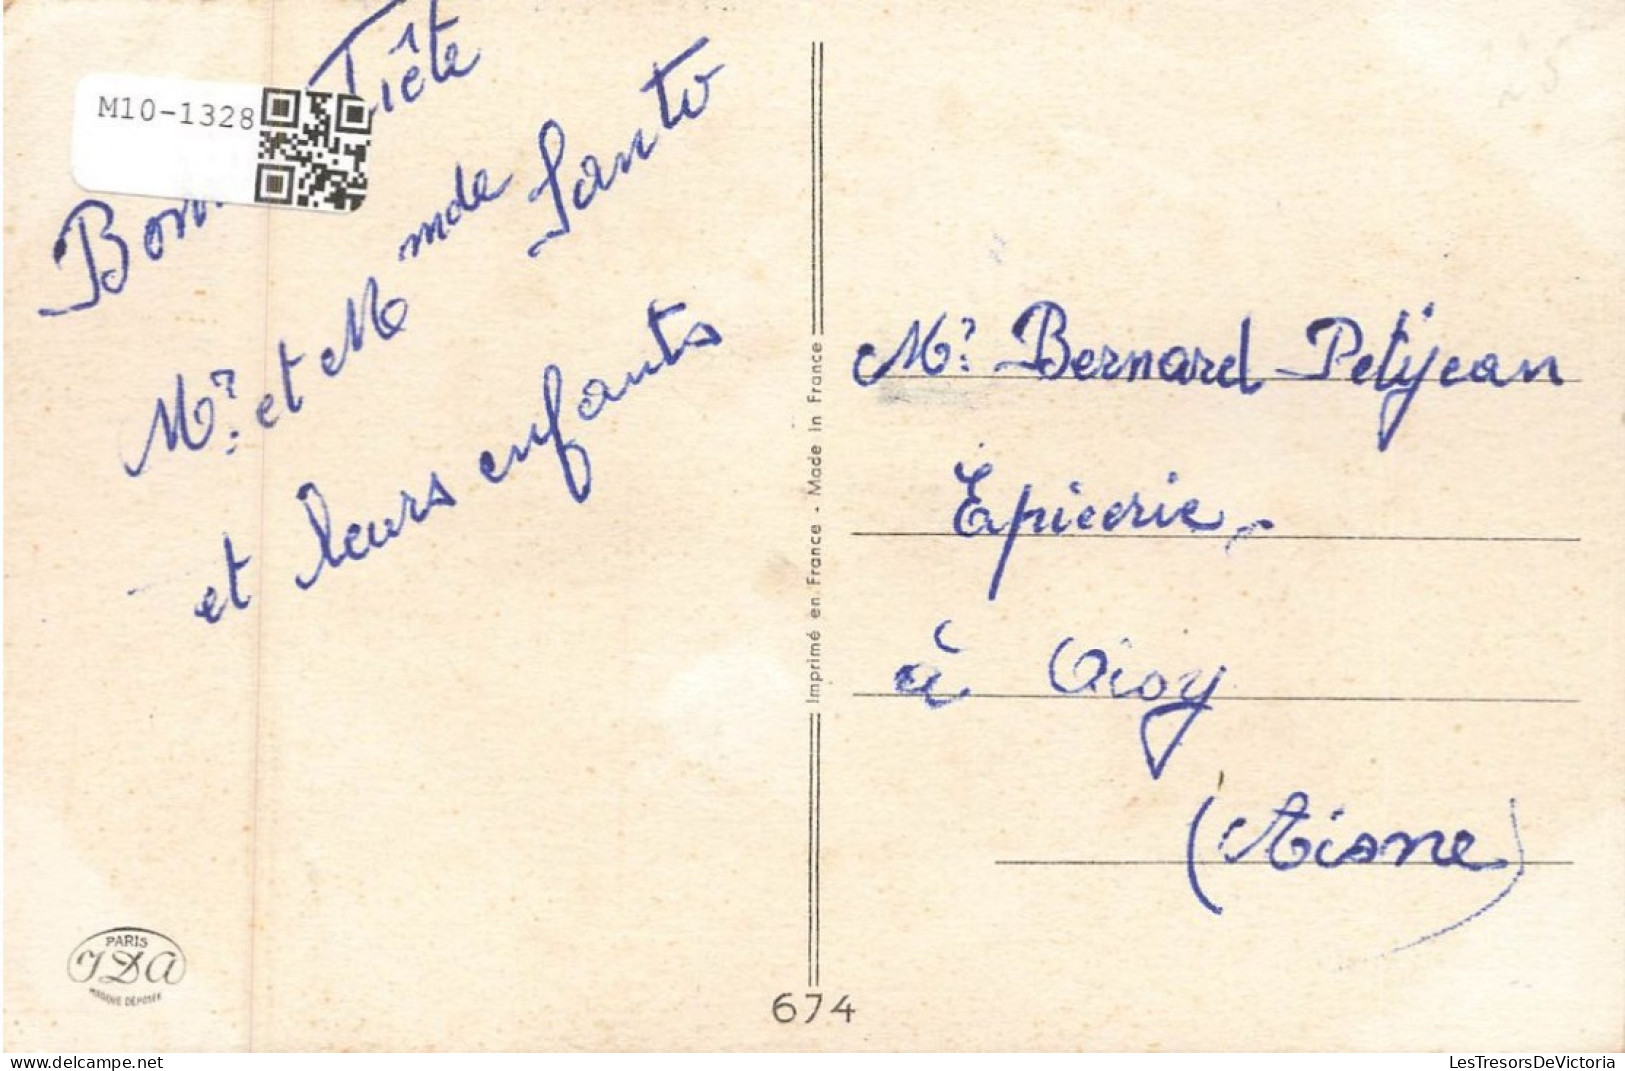 M10-1328
Bonne Fête
Mr. et Mmde Santo
et leurs enfants
Imprimé en France - Made in France
Mr. Bernard Petitjean
Epicerie
à Oisy
(Aisne)
PARIS
IDA
MARQUE DÉPOSÉE
674
delcampe.net
LesTresorsDeVictoria